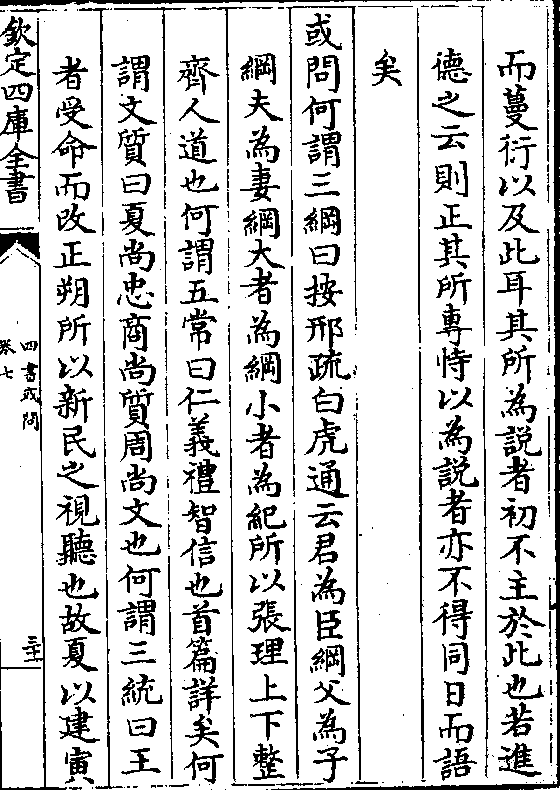 而蔓衍以及此耳其所為説者初不主於此也若進
德之云則正其所專恃以為説者亦不得同日而語
矣
或問何謂三綱曰按邢疏白虎通云君為臣綱父為子
綱夫為妻綱大者為綱小者為紀所以張理上下整
齊人道也何謂五常曰仁義禮智信也首篇詳矣何
謂文質曰夏尚忠商尚質周尚文也何謂三統曰王
者受命而改正朔所以新民之視聽也故夏以建寅
欽定四庫全書
四書或問
卷七